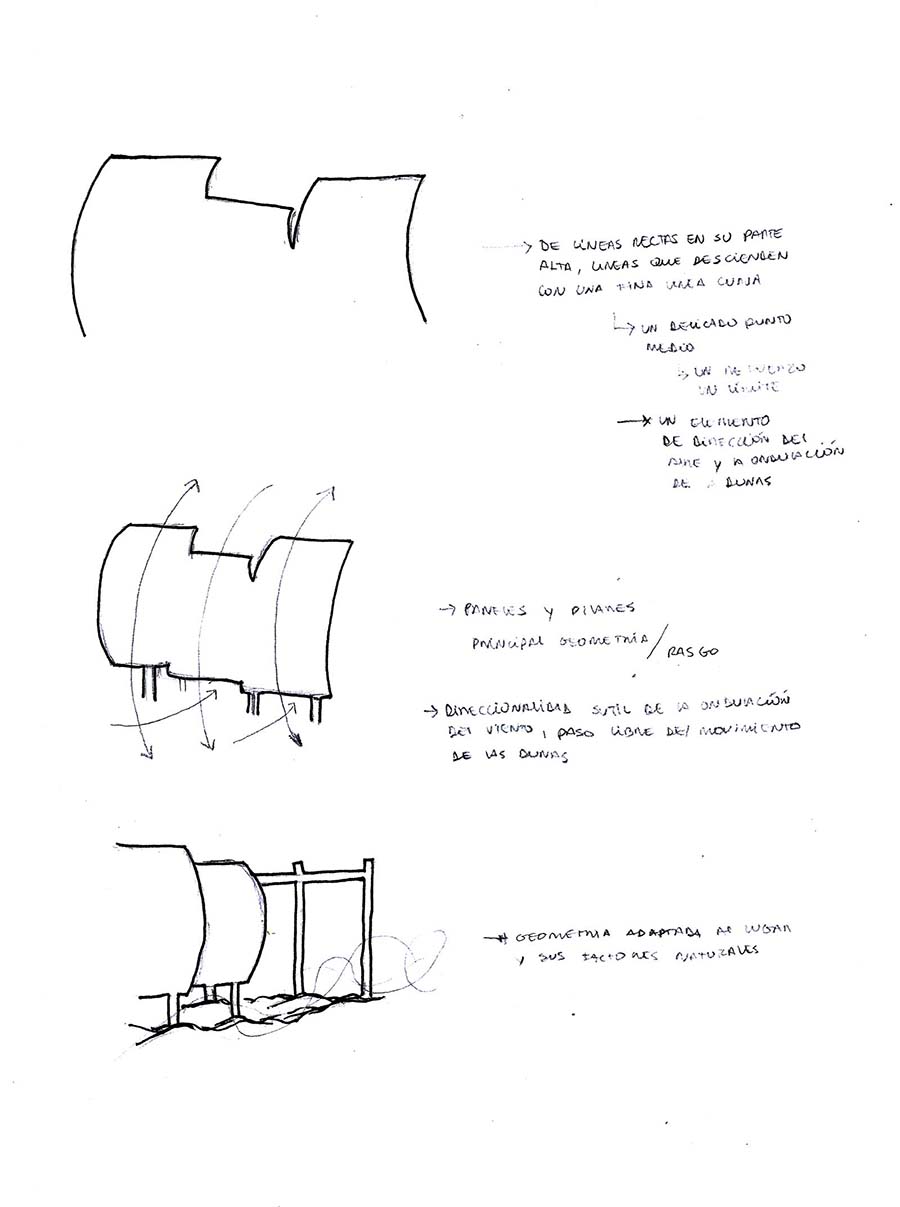 DE LÍNEAS RECTAS EN SU PARTE
ALTA, LINEAS QUE DESCIENDEN
CON UNA FINA LINEA CURVA
UN DELICADO PUNTO
MEDIO
UN REFUERZO
UN LÍMITE
UN ELEMENTO
DE DIRECCIÓN DEL
AIRE Y LA ONDULACIÓN
DE DUNAS
PANELES Y PILARES
PRINCIPAL GEOMETRÍA / RASGO
DIRECCIONALIDAD SUTIL DE LA ONDULACIÓN
DEL VIENTO, PASO LIBRE DEL MOVIMIENTO
DE LAS DUNAS
GEOMETRIA ADAPTADA AL LUGAR
Y SUS FACTORES NATURALES